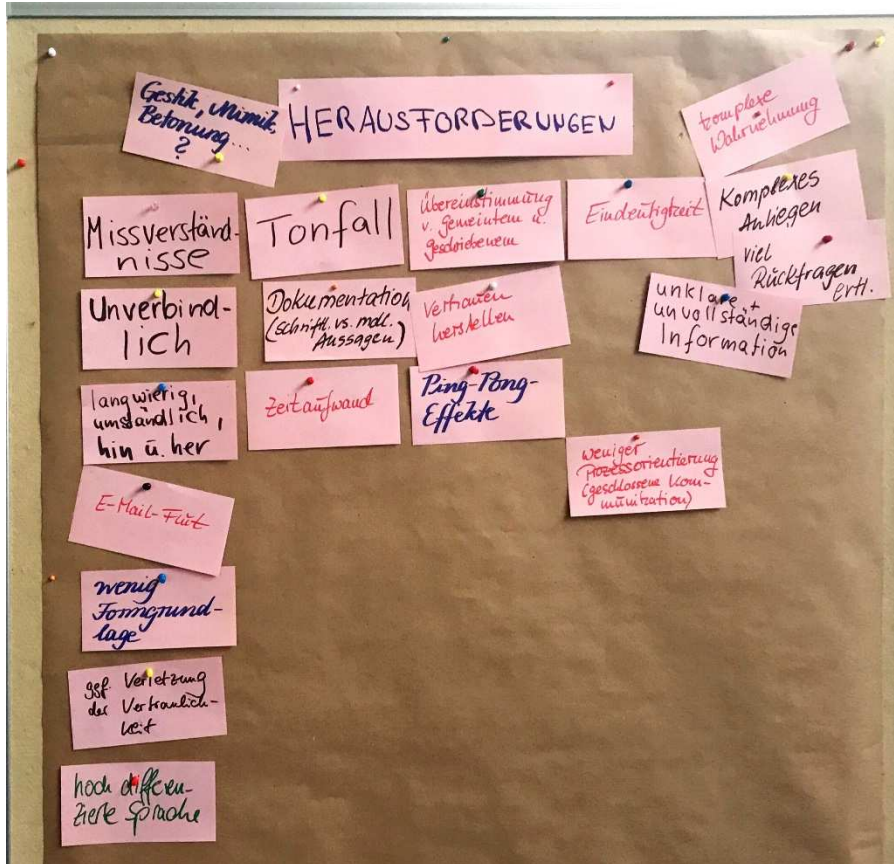 Gestik, Mimik,
Betonung...
?
HERAUSFORDERUNGEN
komplexe
Wahrnehmung
Missverständ-
nisse
Tonfall
Übereinstimmung
v. Gemeintem u.
geschriebenem
Eindeutigkeit
Komplexes
Anliegen
viel
Rückfragen
erfl.
Unverbind-
lich
Dokumentation
(schriftl. vs. mdl.
Aussagen)
Vertrauen
herstellen
unklare +
unvollständige
Information
langwierig,
umständlich,
hin u. her
Zeitaufwand
Ping-Pong-
Effekte
weniger
Prozessorientierung
(geschlossene Kom-
munikation)
E-Mail-Flut
wenig
Formgrund-
lage
ggf. Verletzung
der Vertraulich-
keit
hoch differen-
zierte Sprache